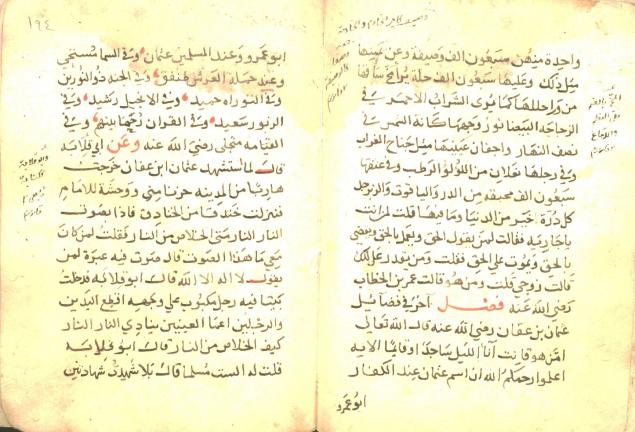 واحدة منهن سبعون الف وصيفة وعن يمينها
مثل ذلك وعليها سبعون الف حلة يرا مخ ساقها
من وراحللها كما يرى الشراب الاحمر في
الزجاجة البيضا نور وجهها كانه الشمس في
نصف النهار واجفان عينيها مثل جناح الغراب
وفي رجلها نعلان من اللولو الرطب وفي عنقها
سبعون الف من الدر والياقوت والزبرجد
كل درة خير من الدنيا وما فيها قلت لمن انت
يا جارية فقالت لمن يقول الحق ويعمل بالحق ويقضي
بالحق ويموت على الحق فقلت ومن يقدر على ذلك
قالت زوجي قلت ومن هو قالت عمر بن الخطاب
رضي الله عنه فصل اخر في فضايل
عثمان بن عفان رضي الله عنه قال الله تعالى
امن هو قانت انا الليل ساجدا وقايما الايه
اعلموا رحمكم الله ان اسم عثمان عند الكفار
ابو عمرو
١٩٤
ابو عمرو وعند المسلمين عثمان وفي السما مستحي
وعند حملة العرش وفي الجنة ذو النورين
وفي التوراه حميد وفي الانجيل رشيد وفي
الزبور سعيد وفي القران رحما بينهم وفي
القيامه رضي الله عنه وعن ابي قلابه
قال لما استشهد عثمان ابن عفان خرجت
هاربا من المدينه حزنا مني ووحشة للامام
فنزلت خندقا من الخنادق فاذا بصوت
النار النار متى الخلاص من النار فقلت لمن كان
معي ما هذا الصوت قال صوت فيه عبرة لمن
يقول لا اله الا الله قال ابو قلابه فدخلت
بيتا فيه رجل مكبوب على وجهه اقطع اليدين
والرجلين اعما العينين ينادي النار النار
كيف الخلاص من النار قال ابو قلابه
قلت له الست مسلما قال بلا شهدت شهادتين